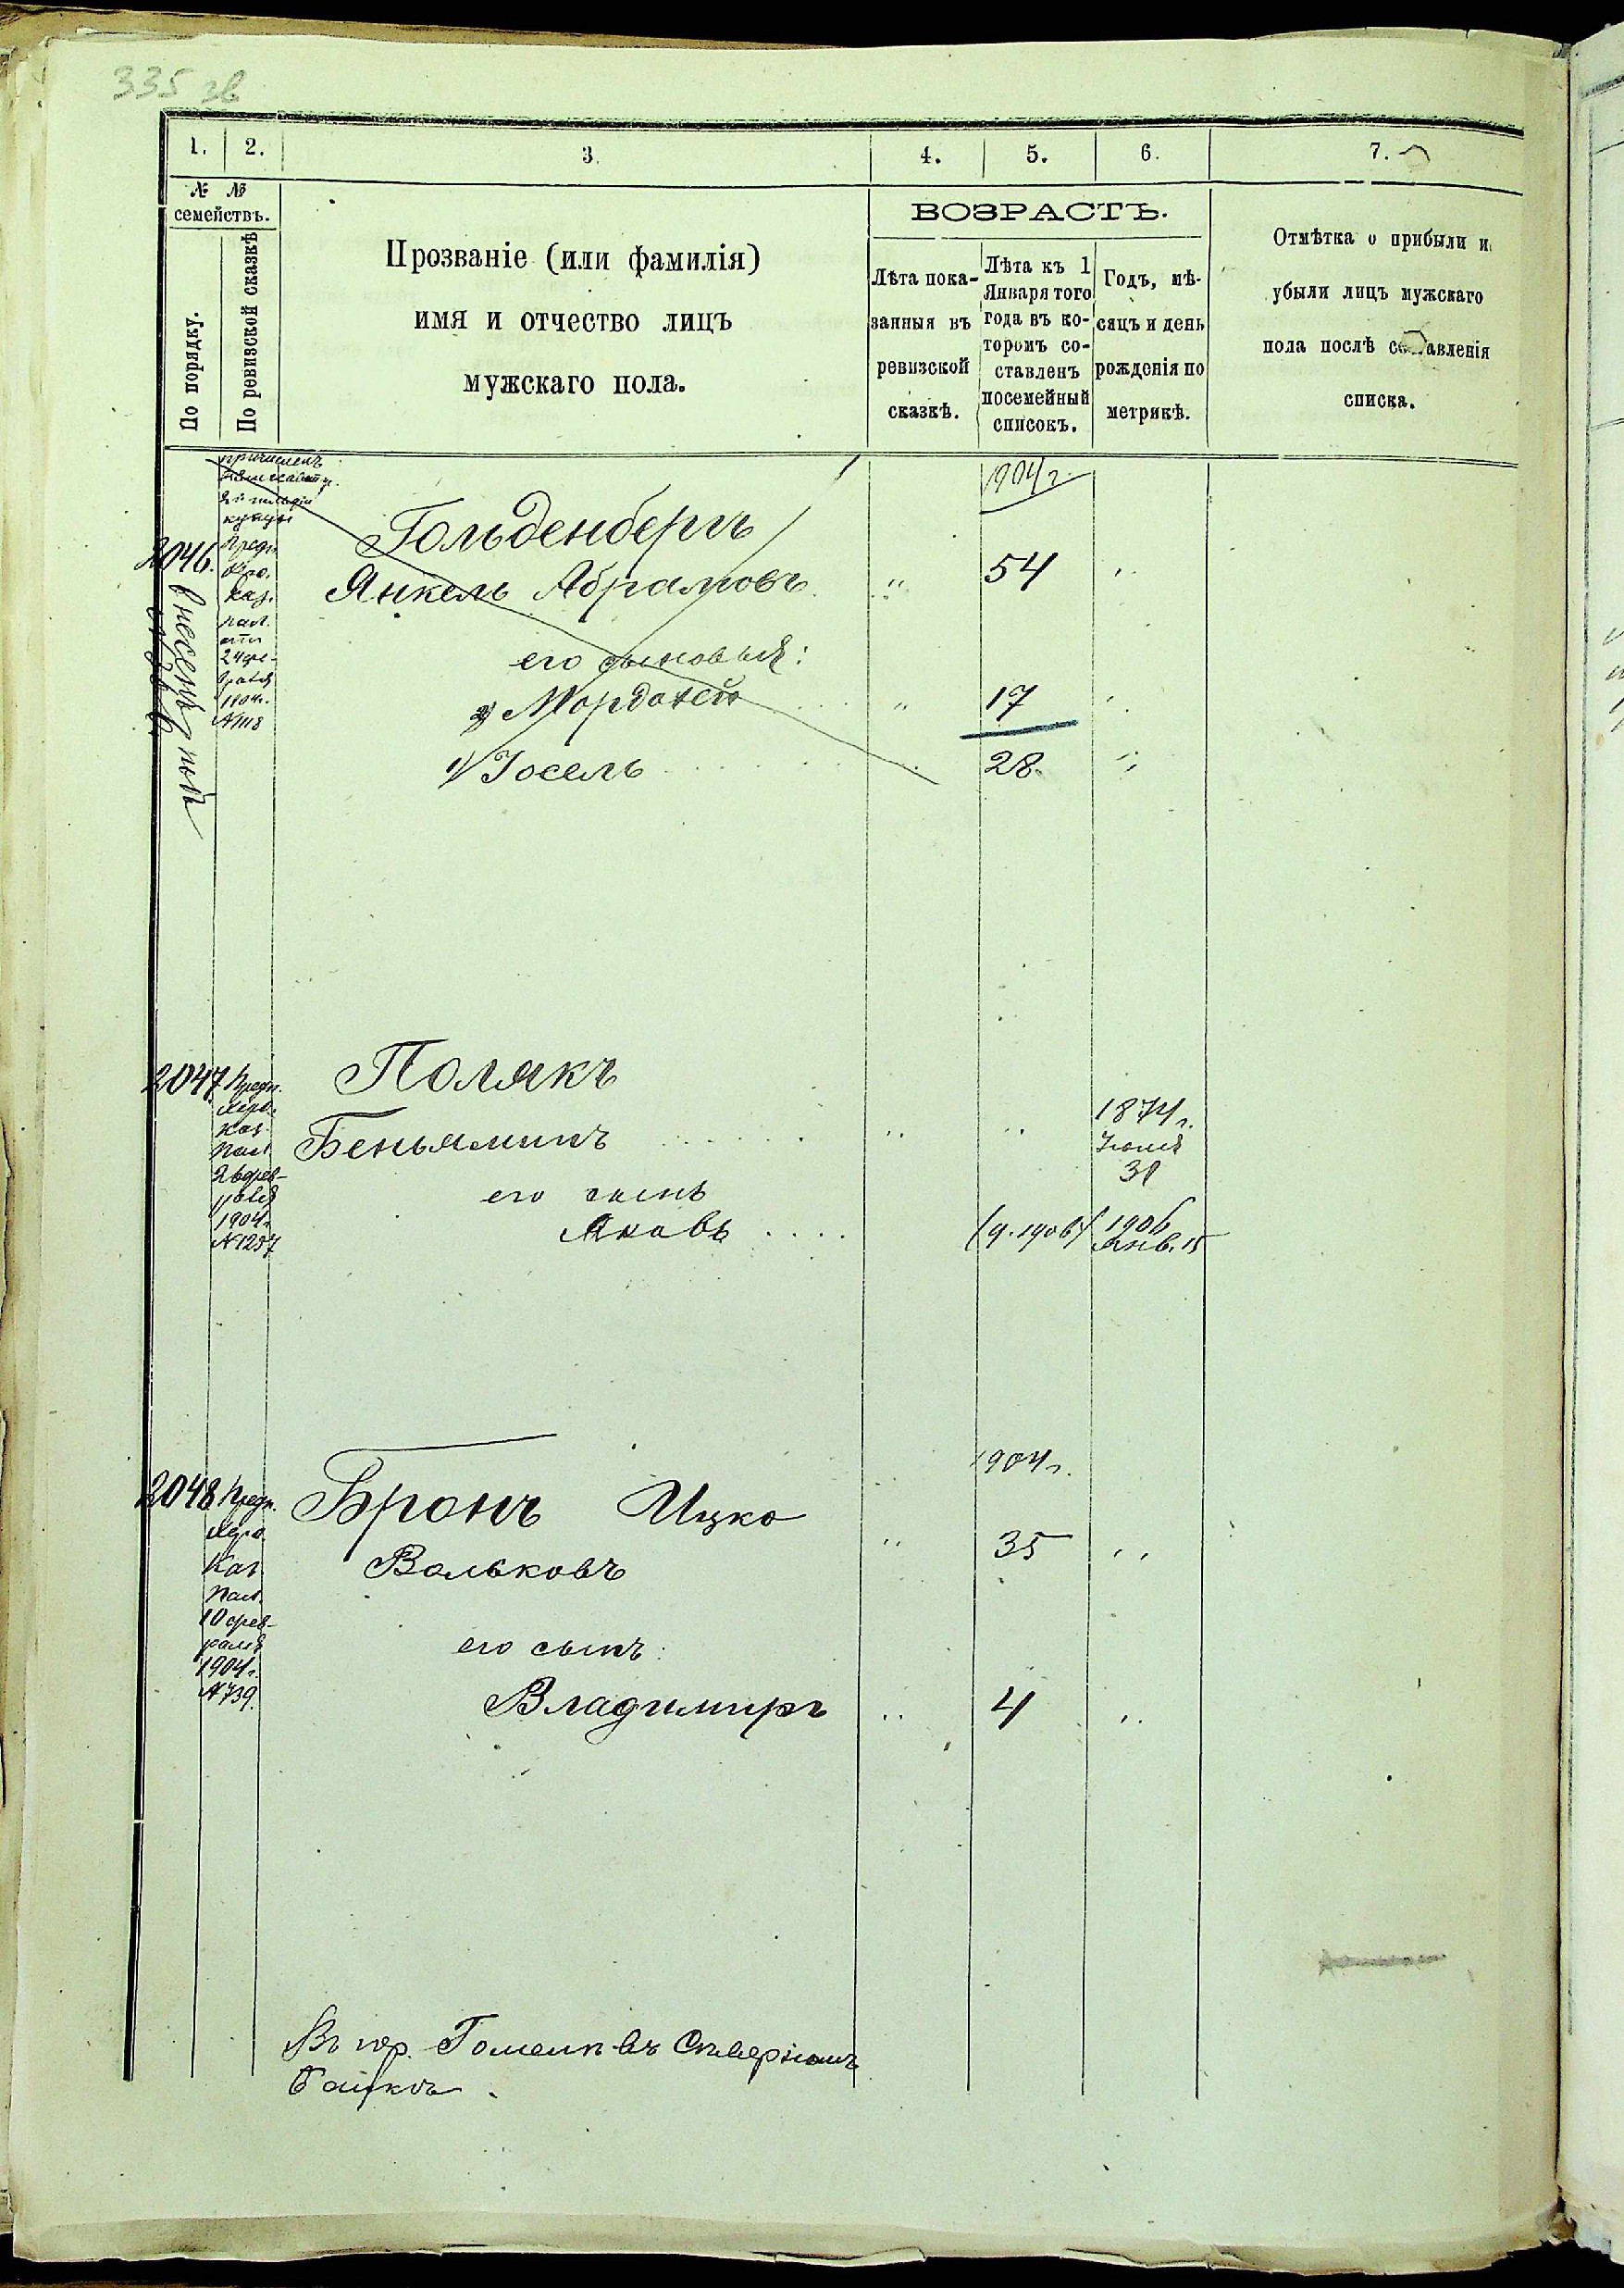 335 зв
1. 2. 3. 4. 5. 6. 7.
№ №
семействъ.
По порядку.
По ревизской сказкѣ
Прозваніе (или фамилія)
имя и отчество лицъ
мужскаго пола.
ВОЗРАСТЪ.
Лѣта пока-
занныя въ
ревизской
сказкѣ.
Лѣта къ 1
Января того
года въ ко-
торомъ со-
ставленъ
посемейный
списокъ.
Годъ, мѣ-
сяцъ и день
рожденія по
метрикѣ.
Отмѣтка о прибыли и
убыли лицъ мужскаго
пола послѣ составленія
списка.
1904 г.
причисленъ
2й гильдіи
купцы
2046.
Предп.
Каз.
Пал.
отъ
24 фе-
враля
1904 г.
№ 1118
Гольденбергъ
Янкель Абрамовъ " 54 "
его сыновья:
2) Мордохей " 17 "
1) Іосель 28 "
2047 Предп.
Хер.
Каз.
Пал.
26 фев-
раля
1904 г.
№ 1257
Полякъ
Беньяминъ " " 1874 г.
Іюля
31
его сынъ
Яковъ (ч. 1906) 1906
Янв. 15
1904 г.
2048 Предп.
Каз.
Пал.
10 фев-
раля
1904 г.
№ 739.
Бронъ Ицко
Вольковъ " 35 "
его сынъ:
Владимиръ " 4 "
Въ гор. Гомелѣ въ Сѣверномъ
Банкѣ.